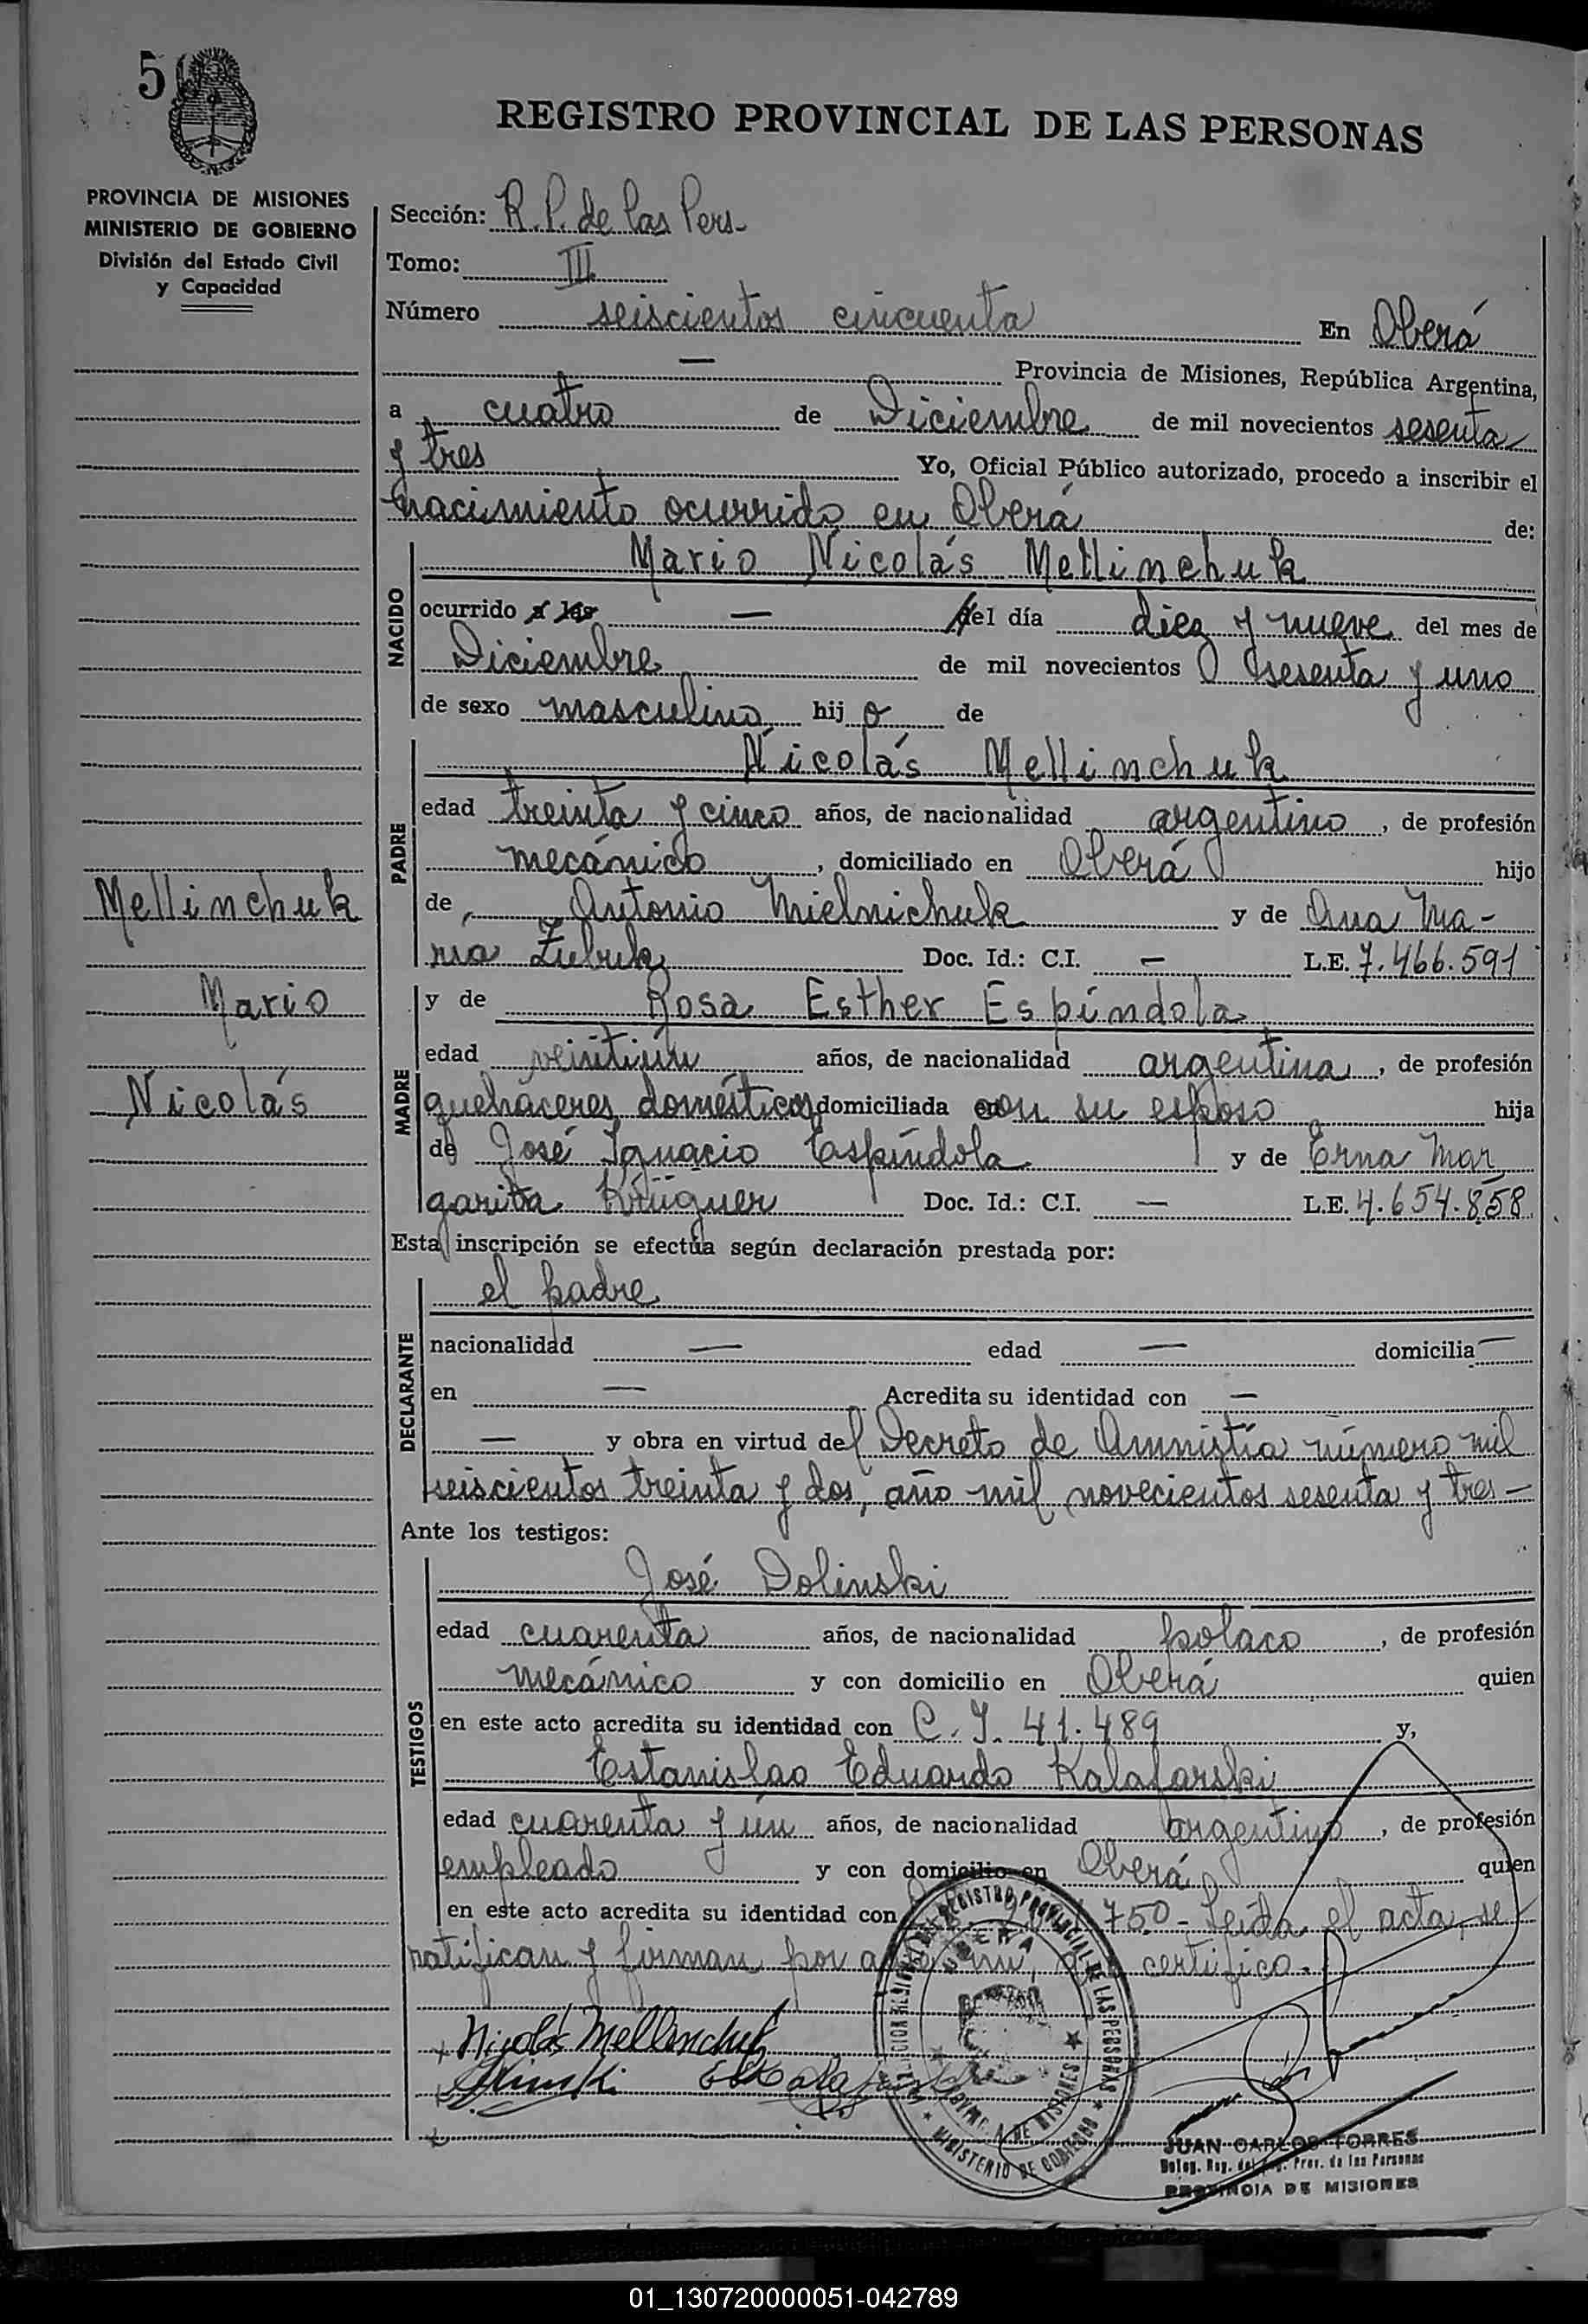 5
REGISTRO PROVINCIAL DE LAS PERSONAS
PROVINCIA DE MISIONES
MINISTERIO DE GOBIERNO
División del Estado Civil
y Capacidad
Sección: R. P. de las Pers.
Tomo: III
Número seiscientos cincuenta En Oberá
— Provincia de Misiones, República Argentina,
a cuatro de Diciembre de mil novecientos sesenta
y tres Yo, Oficial Público autorizado, procedo a inscribir el
nacimiento ocurrido en Oberá de:
NACIDO
Mario Nicolás Mellinchuk
ocurrido a las — del día diez y nueve del mes de
Diciembre de mil novecientos sesenta y uno
de sexo masculino hij o de
PADRE
Nicolás Mellinchuk
edad treinta y cinco años, de nacionalidad argentino, de profesión
mecánico, domiciliado en Oberá hijo
de Antonio Mielnichuk y de Ana Ma-
ría Zubuk Doc. Id.: C.I. — L.E. 7.466.591
Mellinchuk
Mario
Nicolás
MADRE
y de Rosa Esther Espíndola
edad veintiún años, de nacionalidad argentina, de profesión
quehaceres domésticos domiciliada con su esposo hija
de José Ignacio Espíndola y de Erna Mar
garita Krüguer Doc. Id.: C.I. — L.E. 4.654.858
Esta inscripción se efectúa según declaración prestada por:
DECLARANTE
el padre
nacionalidad — edad — domicilia —
en — Acredita su identidad con —
— y obra en virtud del Decreto de Amnistía número mil
seiscientos treinta y dos, año mil novecientos sesenta y tres —
Ante los testigos:
TESTIGOS
José Dolinski
edad cuarenta años, de nacionalidad polaco, de profesión
mecánico y con domicilio en Oberá quien
en este acto acredita su identidad con C. I. 41.489 y,
Estanislao Eduardo Kalafarski
edad cuarenta y un años, de nacionalidad argentino, de profesión
empleado y con domicilio en Oberá quien
en este acto acredita su identidad con 750 - Leída el acta, se
ratifican y firman por ante mí, certifico.
Nicolás Mellinchuk
REGISTRO PROVINCIAL DE LAS PERSONAS
OBERA
MINISTERIO DE GOBIERNO
DE MISIONES
JUAN CARLOS TORRES
Deleg. Reg. del Prov. de las Personas
PROVINCIA DE MISIONES
01_130720000051-042789